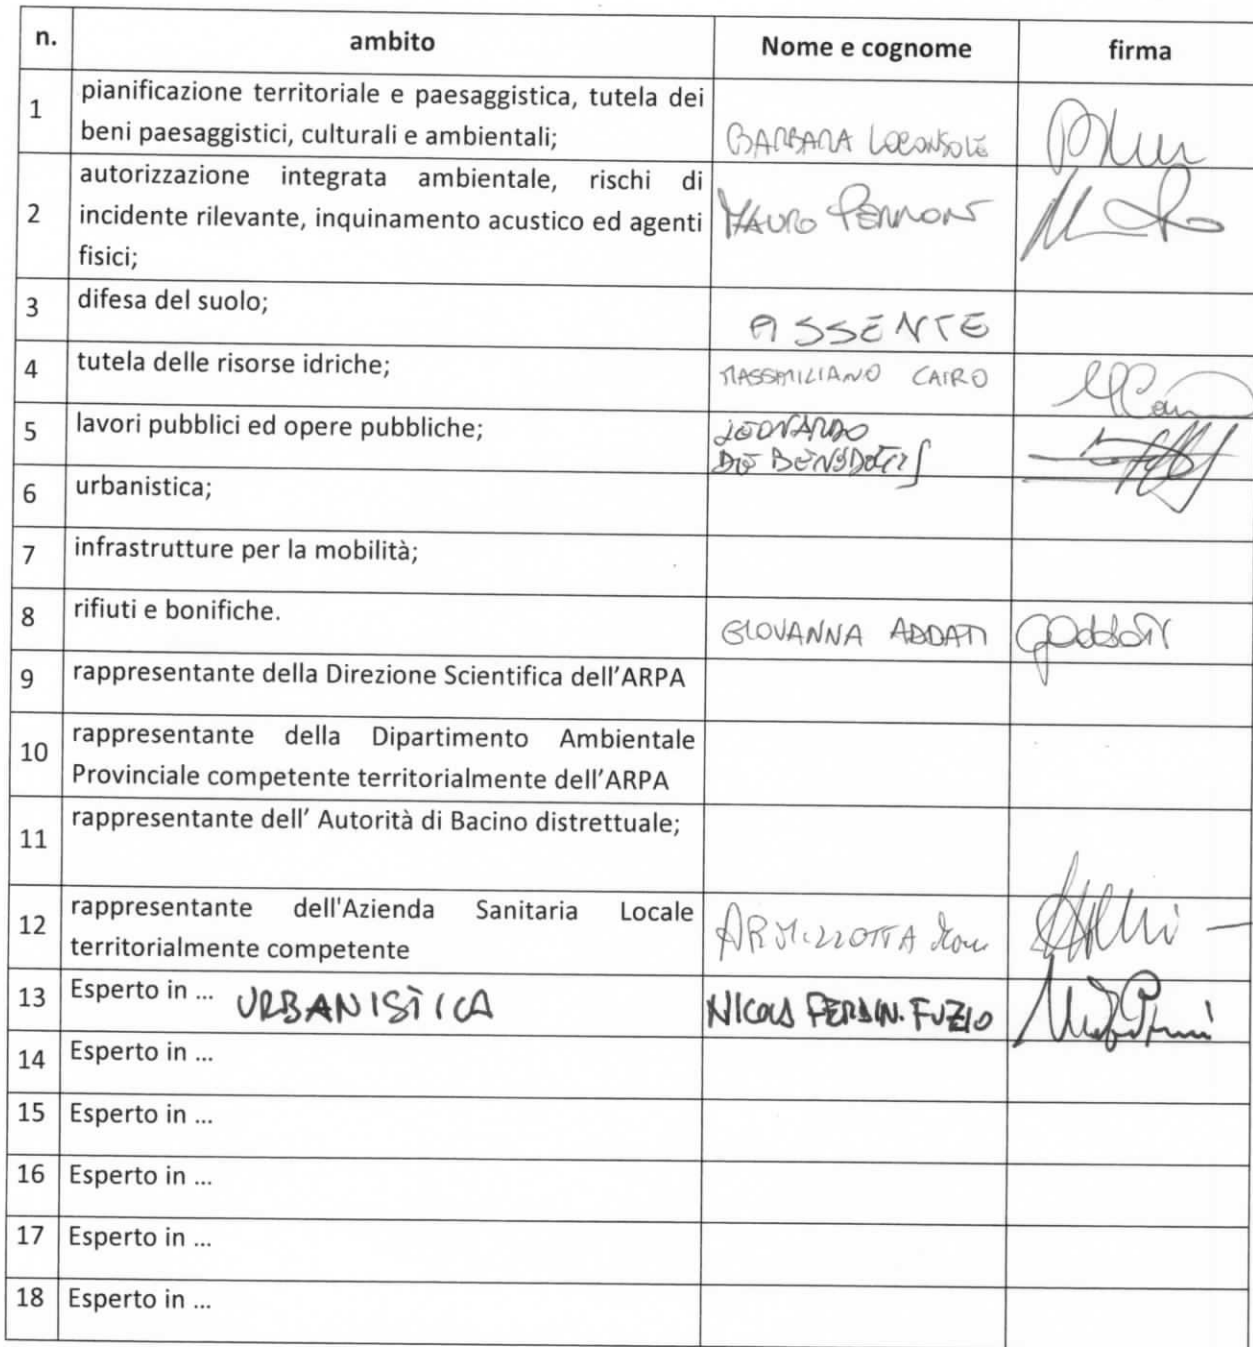 n. ambito Nome e cognome firma
1 pianificazione territoriale e paesaggistica, tutela dei
beni paesaggistici, culturali e ambientali; BARBARA LOCONSOLE
2 autorizzazione integrata ambientale, rischi di
incidente rilevante, inquinamento acustico ed agenti MAURO PERRONE
fisici;
3 difesa del suolo; ASSENTE
4 tutela delle risorse idriche; MASSIMILIANO CAIRO
5 lavori pubblici ed opere pubbliche; LEONARDO
DE BENEDETTIS
6 urbanistica;
7 infrastrutture per la mobilità;
8 rifiuti e bonifiche. GIOVANNA ADDATI
9 rappresentante della Direzione Scientifica dell'ARPA
10 rappresentante della Dipartimento Ambientale
Provinciale competente territorialmente dell'ARPA
11 rappresentante dell' Autorità di Bacino distrettuale;
12 rappresentante dell'Azienda Sanitaria Locale
territorialmente competente
13 Esperto in ... URBANISTICA NICOLA FERDIN. FUZIO
14 Esperto in ...
15 Esperto in ...
16 Esperto in ...
17 Esperto in ...
18 Esperto in ...